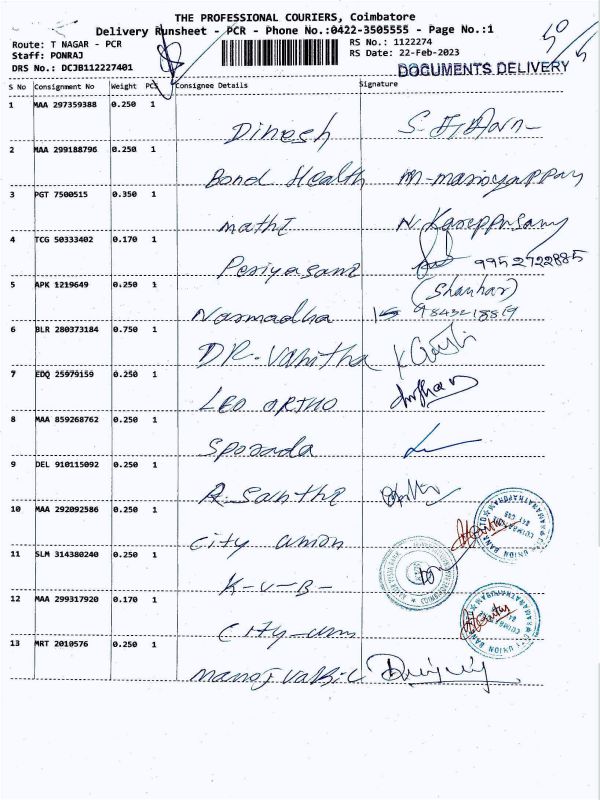 THE PROFESSIONAL COURIERS, Coimbatore
Delivery Runsheet - PCR - Phone No.:0422-3505555 - Page No.:1
Route: T NAGAR - PCR RS No.: 1122274
Staff: PONRAJ RS Date: 22-Feb-2023
DRS No.: DCJB112227401 DOCUMENTS DELIVERY
S No Consignment No Weight PCS Consignee Details Signature
1 MAA 297359388 0.250 1
Dinesh
2 MAA 299188796 0.250 1
Bond Health
3 PGT 7500515 0.350 1
mathi
4 TCG 50333402 0.170 1
Periyasami 9952722885
5 APK 1219649 0.250 1
(Shanhar)
Narmadha 9843218819
6 BLR 280373184 0.750 1
DR. Vanitha
7 EDQ 25979159 0.250 1
LEO ORTHO
8 MAA 859268762 0.250 1
9 DEL 910115092 0.250 1
R. Santha
10 MAA 292092586 0.250 1
city union
11 SLM 314380240 0.250 1
K-V-B-
12 MAA 299317920 0.170 1
City-
13 MRT 2010576 0.250 1
manoj